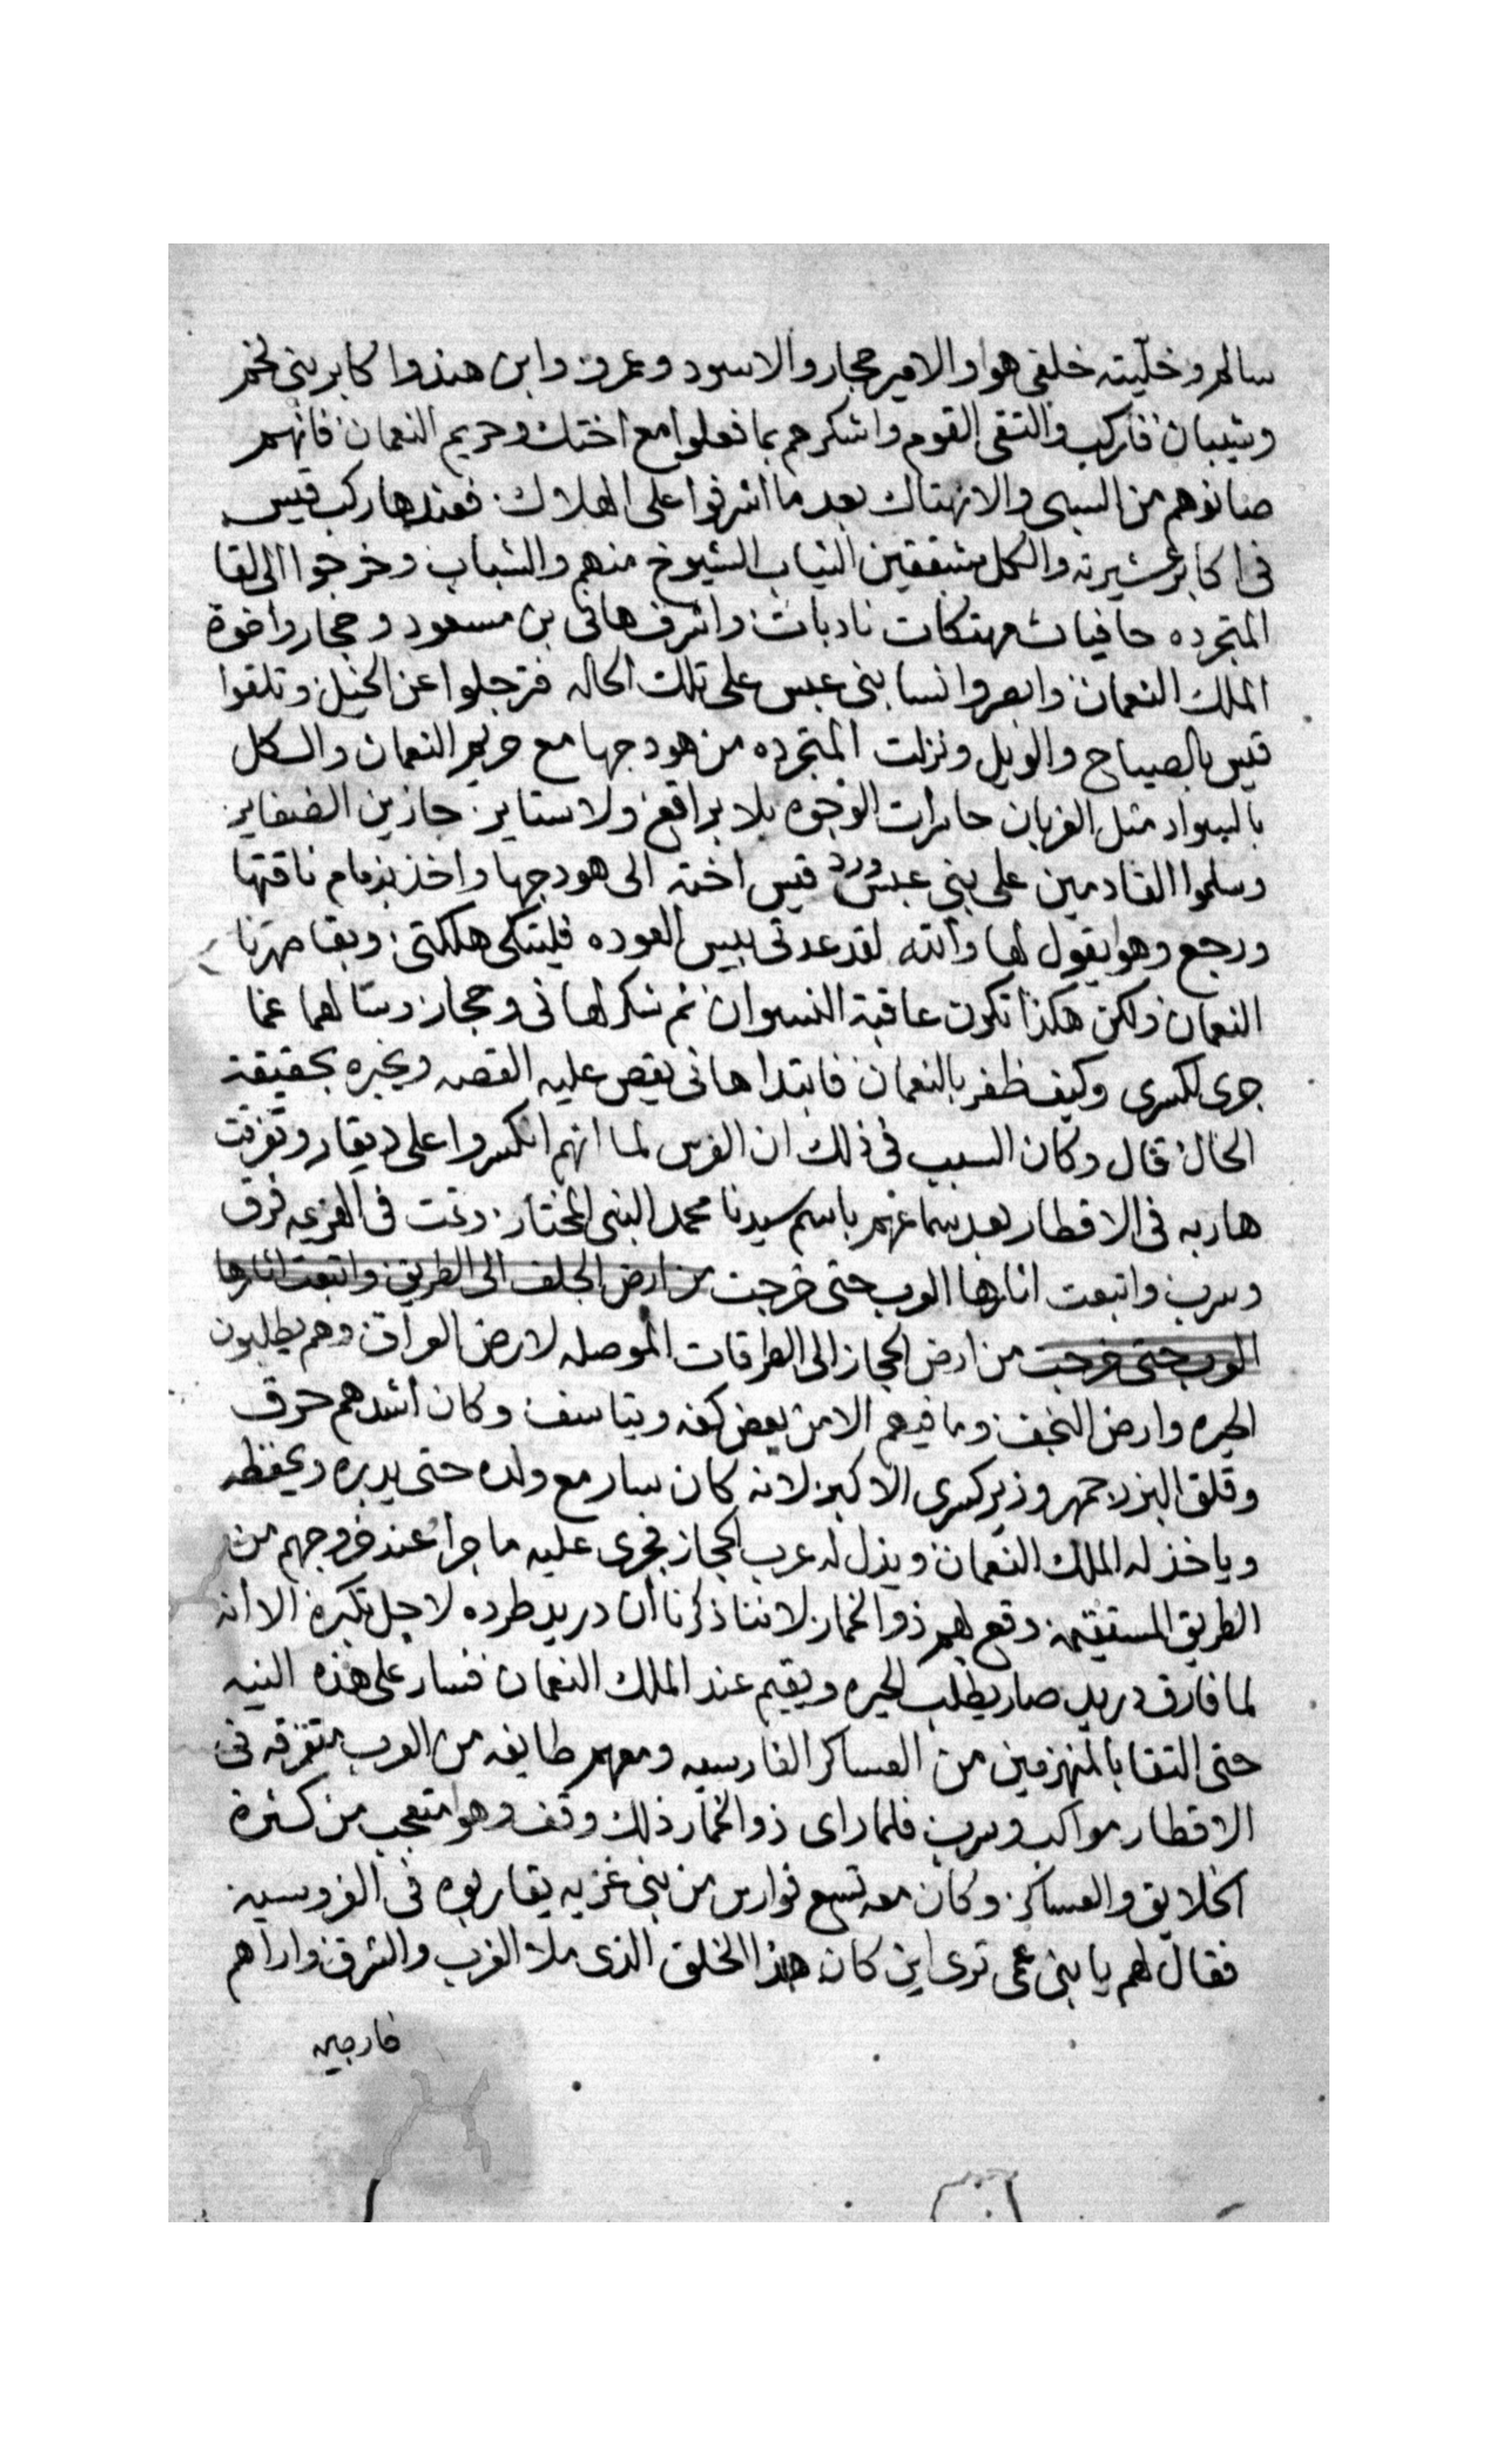 سالم وخليته خلفي هوا والامير حجار والاسود وعمرو وابن هند واكابر بني لخم
وشيبان فاركب والتقي القوم واشكرهم بما فعلوا مع اختك وحريم النعمان فانهم
صانوهم من السبي والانهتاك بعد ما اشرفوا على الهلاك فعندها ركب قيس
في اكابر عشيرته والكل مشققين الثياب الشيوخ منهم والشباب وخرجوا الى لقا
المتجرده حافيات مهتكات نادبات واشرف هاني بن مسعود وحجار واخوة
الملك النعمان وابصروا نسا بني عبس على تلك الحاله فترجلوا عن الخيل وتلقوا
قيس بالصياح والويل ونزلت المتجرده من هودجها مع حريم النعمان والكل
بالسواد مثل الغربان حاسرات الوجوه بلا براقع ولا ستاير جازين الضفاير
وسلموا القادمين على بني عبس ورد قيس اخته الى هودجها واخذ بزمام ناقتها
ورجع وهو يقول لها والله لقد عدتي بيس العوده فليتكي هلكتي وبقا صهرنا
النعمان ولكن هكذا تكون عاقبة النسوان ثم شكر لهاني وحجار وسالهما عما
جرى لكسرى وكيف ظفر بالنعمان فابتدا هاني يقص عليه القصه ويخبره بحقيقة
الحال قال وكان السبب في ذلك ان الفرس لما انهم انكسروا على ذيقار وتفرقت
هاربه في الاقطار بعد سماعهم باسم سيدنا محمد النبي المختار وتمت في الهزيمه فرق
وسرب واتبعت اثارها العرب حتى خرجت من ارض الجلف الى الطريق واتبعت اثارها
العرب حتى خرجت من ارض الحجاز الى الطرقات الموصله لارض العراق وهم يطلبون
الحيره وارض النجف وما فيهم الا من يعض كفه ويتاسف وكان اشدهم حرق
وقلق البزرجمهر وزير كسرى الاكبر لانه كان سار مع ولده حتى يدبره ويحفظه
وياخذ له الملك النعمان ويذل له عرب الحجاز فجرى عليه ما جرا عند خروجهم من
الطريق المستقيمه وقع بهم ذو الخمار لاننا ذكرنا ان دريد طرده لاجل تكبره الا انه
لما فارق دريد صار يطلب الحيره ويقيم عند الملك النعمان فسار على هذه النيه
حتى التقا بالمنهزمين من العساكر الفارسيه ومعهم طايفه من العرب متفرقه في
الاقطار مواكب وسرب فلما راى ذو الخمار ذلك وقف وهوا متعجب من كثرة
الخلايق والعساكر وكان معه تسع فوارس من بني غزيه يقاربوه في الفروسيه
فقال لهم يا بني عمي ترى اين كان هذا الخلق الذي ملا الغرب والشرق واراهم
خارجين